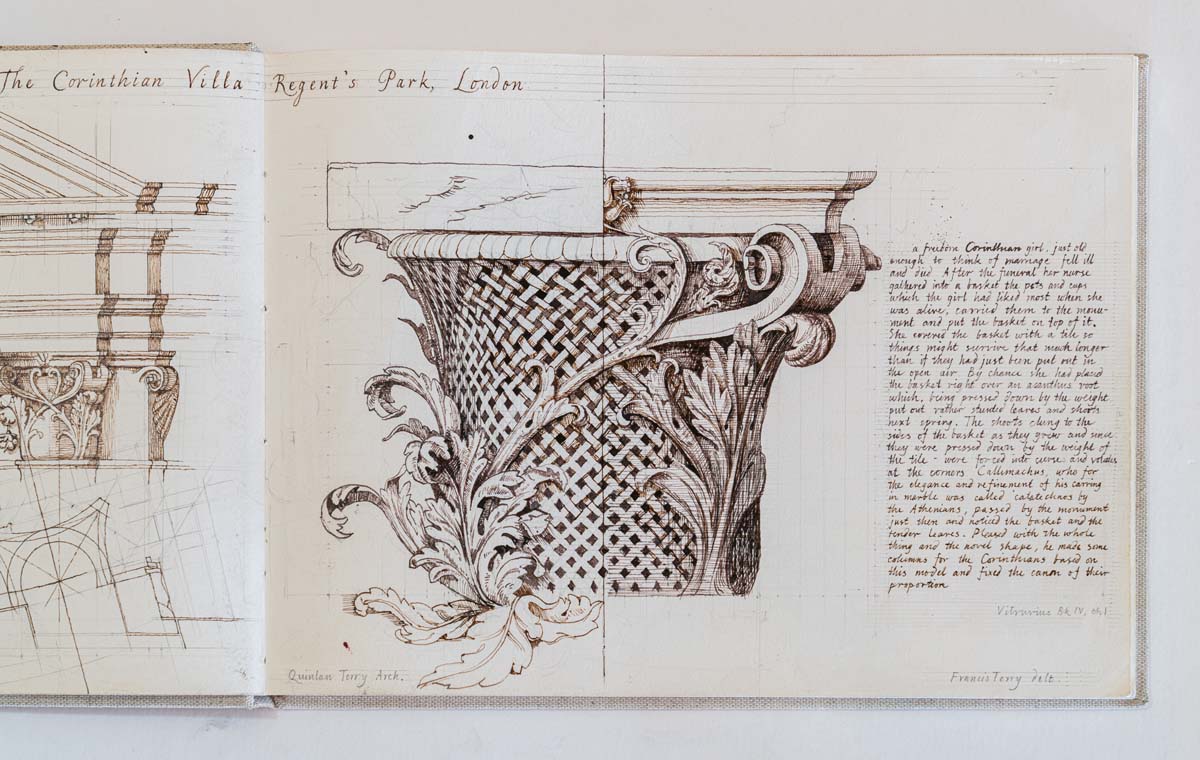 The Corinthian Villa Regent's Park, London
a freeborn Corinthian girl, just old
enough to think of marriage fell ill
and died. After the funeral her nurse
gathered into a basket the pots and cups
which the girl had liked most when she
was alive, carried them to the monu-
ment and put the basket on top of it.
She covered the basket with a tile so
things might survive that much longer
than if they had just been put out in
the open air. By chance she had placed
the basket right over an acanthus root
which, being pressed down by the weight
put out rather stunted leaves and shoots
next spring. The shoots clung to the
sides of the basket as they grew and since
they were pressed down by the weight of
the tile - were forced into curves and volutes
at the corners Callimachus, who for
the elegance and refinement of his carving
in marble was called catatechnos by
the Athenians, passed by the monument
just then and noticed the basket and the
tender leaves. Pleased with the whole
thing and the novel shape, he made some
columns for the Corinthians based on
this model and fixed the canon of their
proportion
Vitruvius Bk IV, ch 1
Quinlan Terry Arch.
Francis Terry delt